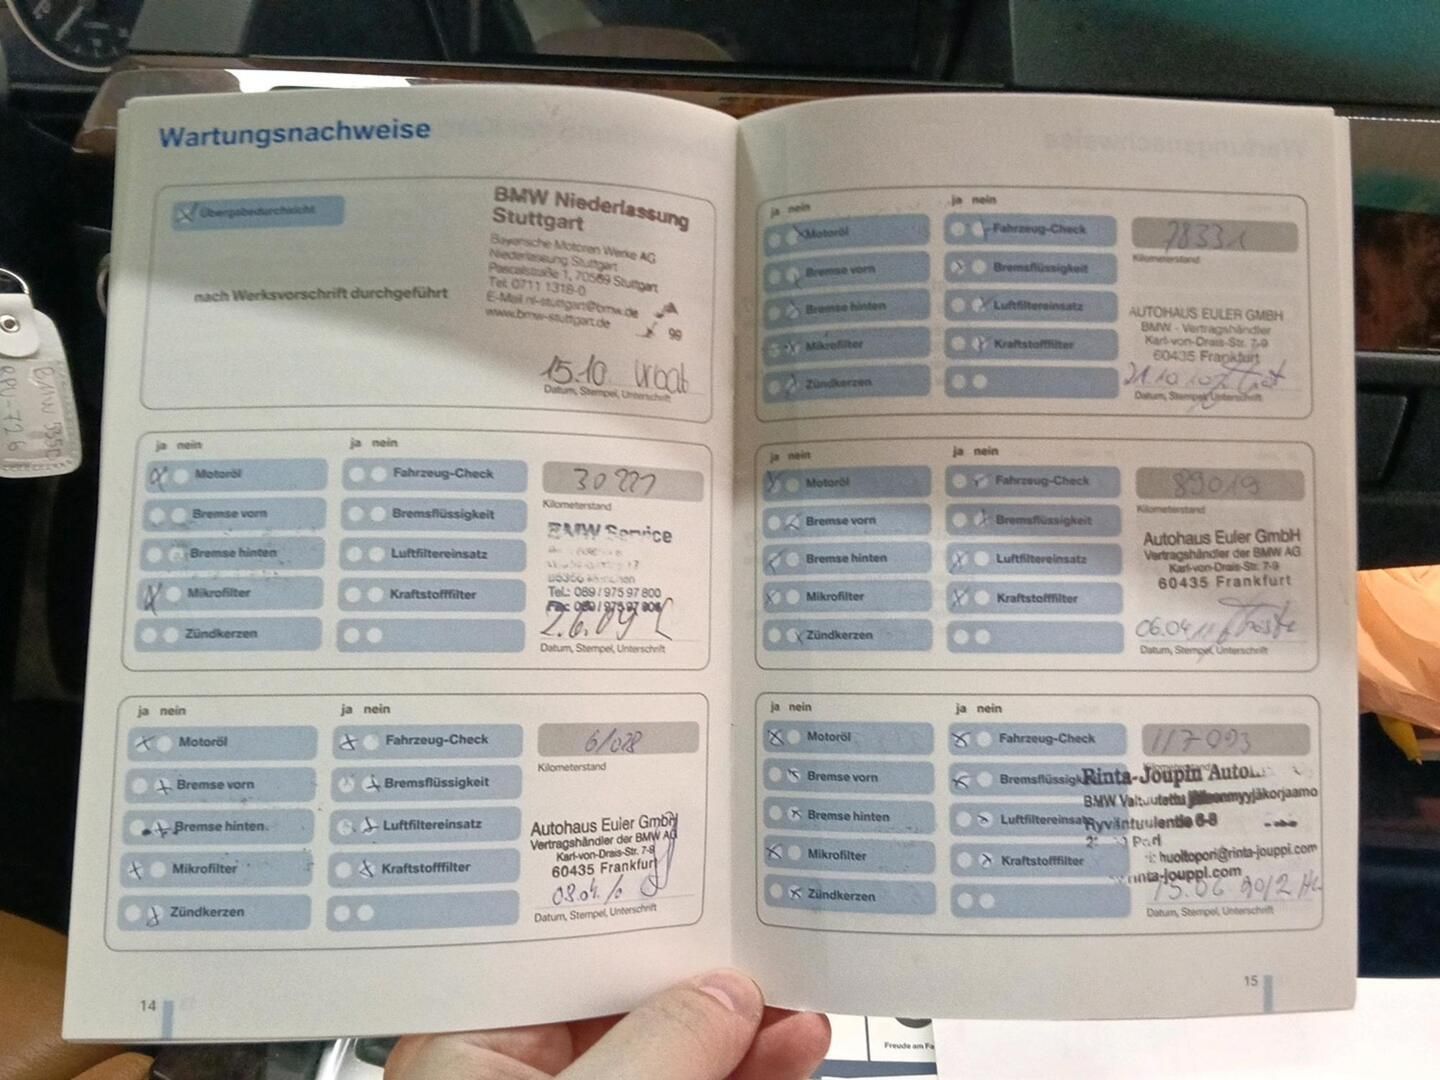 Wartungsnachweise
Übergabedurchsicht
nach Werksvorschrift durchgeführt
BMW Niederlassung
Stuttgart
Bayerische Motoren Werke AG
Niederlassung Stuttgart
Pascalstraße 1, 70569 Stuttgart
Tel. 0711 1318-0
E-Mail nl-stuttgart@bmw.de
www.bmw-stuttgart.de
99
15.10
Datum, Stempel, Unterschrift
ja nein
ja nein
Motoröl
Fahrzeug-Check
Bremse vorn
Bremsflüssigkeit
Bremse hinten
Luftfiltereinsatz
Mikrofilter
Kraftstofffilter
Zündkerzen
30
Kilometerstand
BMW Service
Tel.: 089 / 975 97 800
Fax: 089 / 975 97 806
2.6.09
Datum, Stempel, Unterschrift
ja nein
ja nein
Motoröl
Fahrzeug-Check
Bremse vorn
Bremsflüssigkeit
Bremse hinten
Luftfiltereinsatz
Mikrofilter
Kraftstofffilter
Zündkerzen
61028
Kilometerstand
Autohaus Euler GmbH
Vertragshändler der BMW AG
Karl-von-Drais-Str. 7-9
60435 Frankfurt
Datum, Stempel, Unterschrift
14
ja nein
ja nein
Motoröl
Fahrzeug-Check
Bremse vorn
Bremsflüssigkeit
Bremse hinten
Luftfiltereinsatz
Mikrofilter
Kraftstofffilter
Zündkerzen
78331
Kilometerstand
AUTOHAUS EULER GMBH
BMW - Vertragshändler
Karl-von-Drais-Str. 7-9
60435 Frankfurt
21.10.10
Datum, Stempel, Unterschrift
ja nein
ja nein
Motoröl
Fahrzeug-Check
Bremse vorn
Bremsflüssigkeit
Bremse hinten
Luftfiltereinsatz
Mikrofilter
Kraftstofffilter
Zündkerzen
89019
Kilometerstand
Autohaus Euler GmbH
Vertragshändler der BMW AG
Karl-von-Drais-Str. 7-9
60435 Frankfurt
06.04.11
Datum, Stempel, Unterschrift
ja nein
ja nein
Motoröl
Fahrzeug-Check
Bremse vorn
Bremse hinten
Luftfiltereinsatz
Mikrofilter
Kraftstofffilter
Zündkerzen
117093
Rinta-Joupin
BMW Valtuutettu jälleenmyyjäkorjaamo
Hyväntuulentie 6-8
huoltopori@rinta-jouppi.com
rinta-jouppi.com
15.06.2012
Datum, Stempel, Unterschrift
15
Freude am